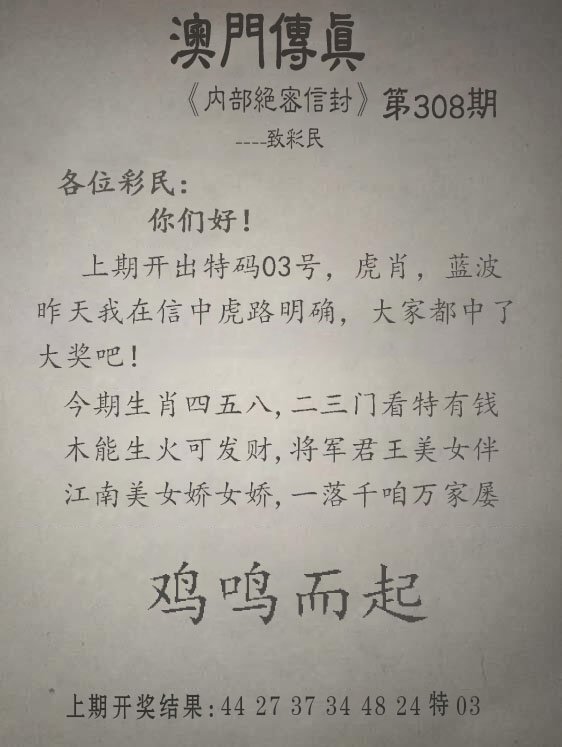 澳門傳眞
《内部絕密信封》第308期
----致彩民
各位彩民：
你们好！
上期开出特码03号，虎肖，蓝波
昨天我在信中虎路明确，大家都中了
大奖吧！
今期生肖四五八,二三门看特有钱
木能生火可发财,将军君王美女伴
江南美女娇女娇,一落千咱万家屡
鸡鸣而起
上期开奖结果:44 27 37 34 48 24特03